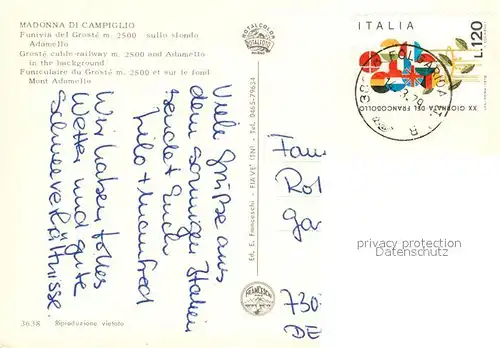 MADONNA DI CAMPIGLIO
Funivia del Grostè m. 2500 sullo sfondo
Adamello
Grostè cable-railway m. 2500 and Adamello
in the background
Funiculaire du Grostè m. 2500 et sur le fond
Mont Adamello
ROTALCOLOR
ROTALFOTO
MILANO
ITALIA
L.120
XX GIORNATA DEL FRANCOBOLLO
Viele Grüße aus
dem sonnigen Italien
sendet Euch
Lilo + Manfred
Wir haben tolles
Wetter und gute
Schneeverhältnisse.
Ed. E. Franceschi - FIAVÈ (TN) - Tel. 0465-79634
FRANCESCHI
Fam
Rol
Ga
730
DE
privacy protection
VINTAGEPOSTCARDS.COM
3638 Riproduzione vietata